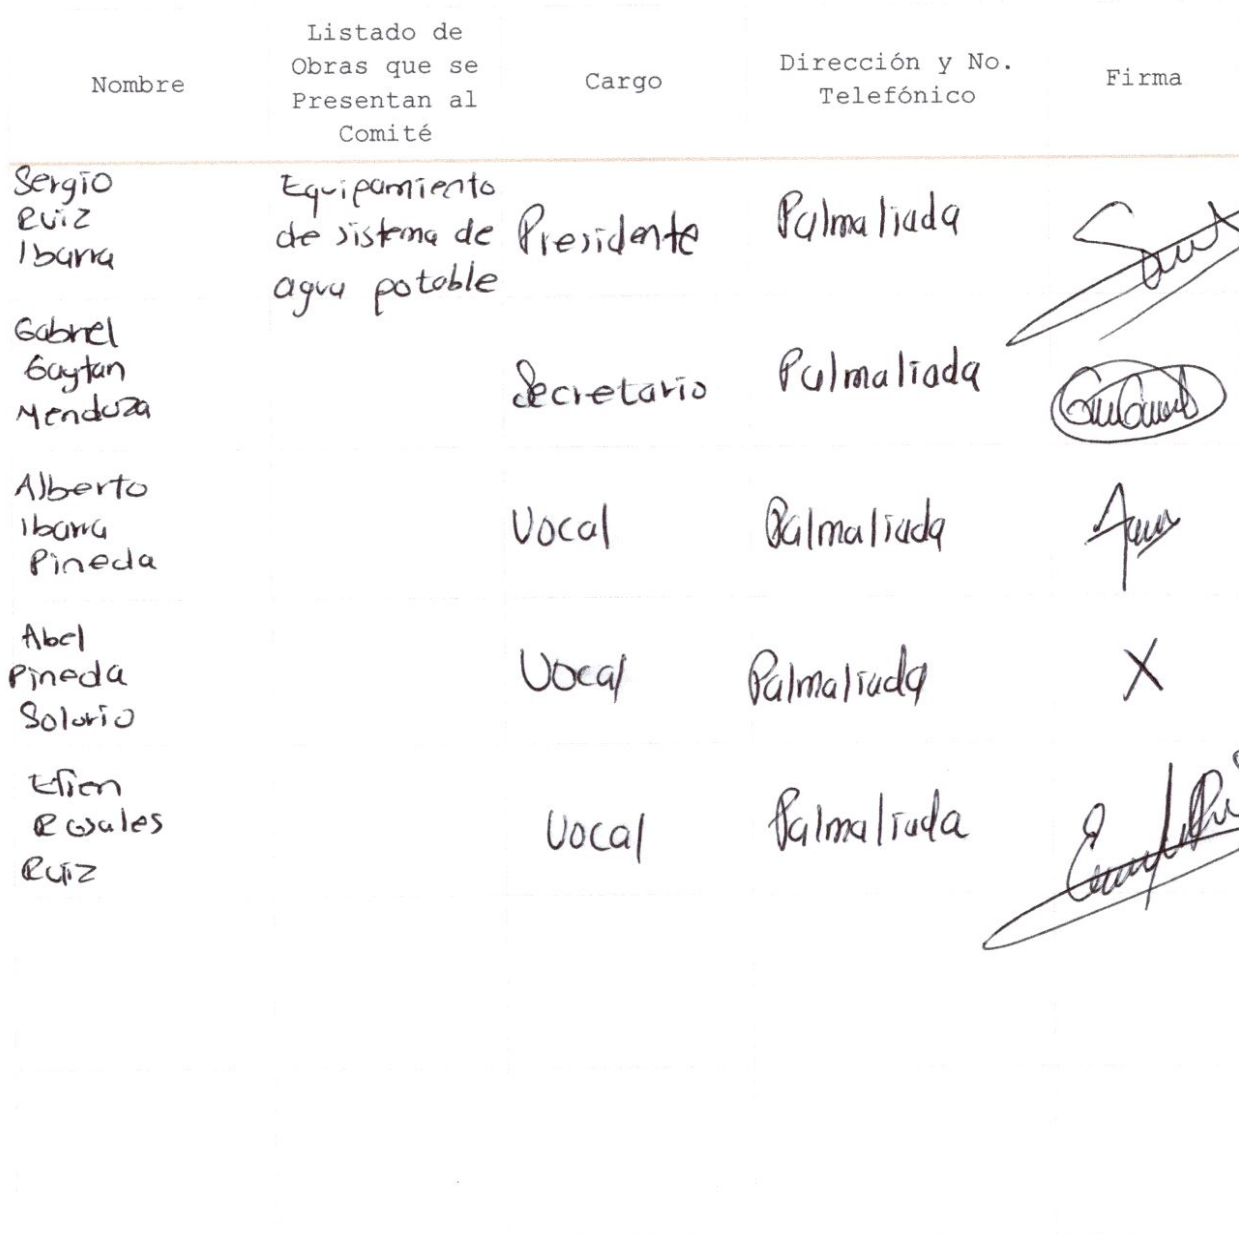 Nombre
Listado de
Obras que se
Presentan al
Comité
Cargo
Dirección y No.
Telefónico
Firma
Sergio
Ruiz
Ibarra
Equipamiento
de sistema de
agua potable
Presidente
Palmaliada
Gabriel
Gaytan
Mendoza
Secretario
Palmaliada
Alberto
Ibarra
Pineda
Vocal
Palmaliada
Abel
Pineda
Solorio
Vocal
Palmaliada
X
Rosales
Ruiz
Vocal
Palmaliada